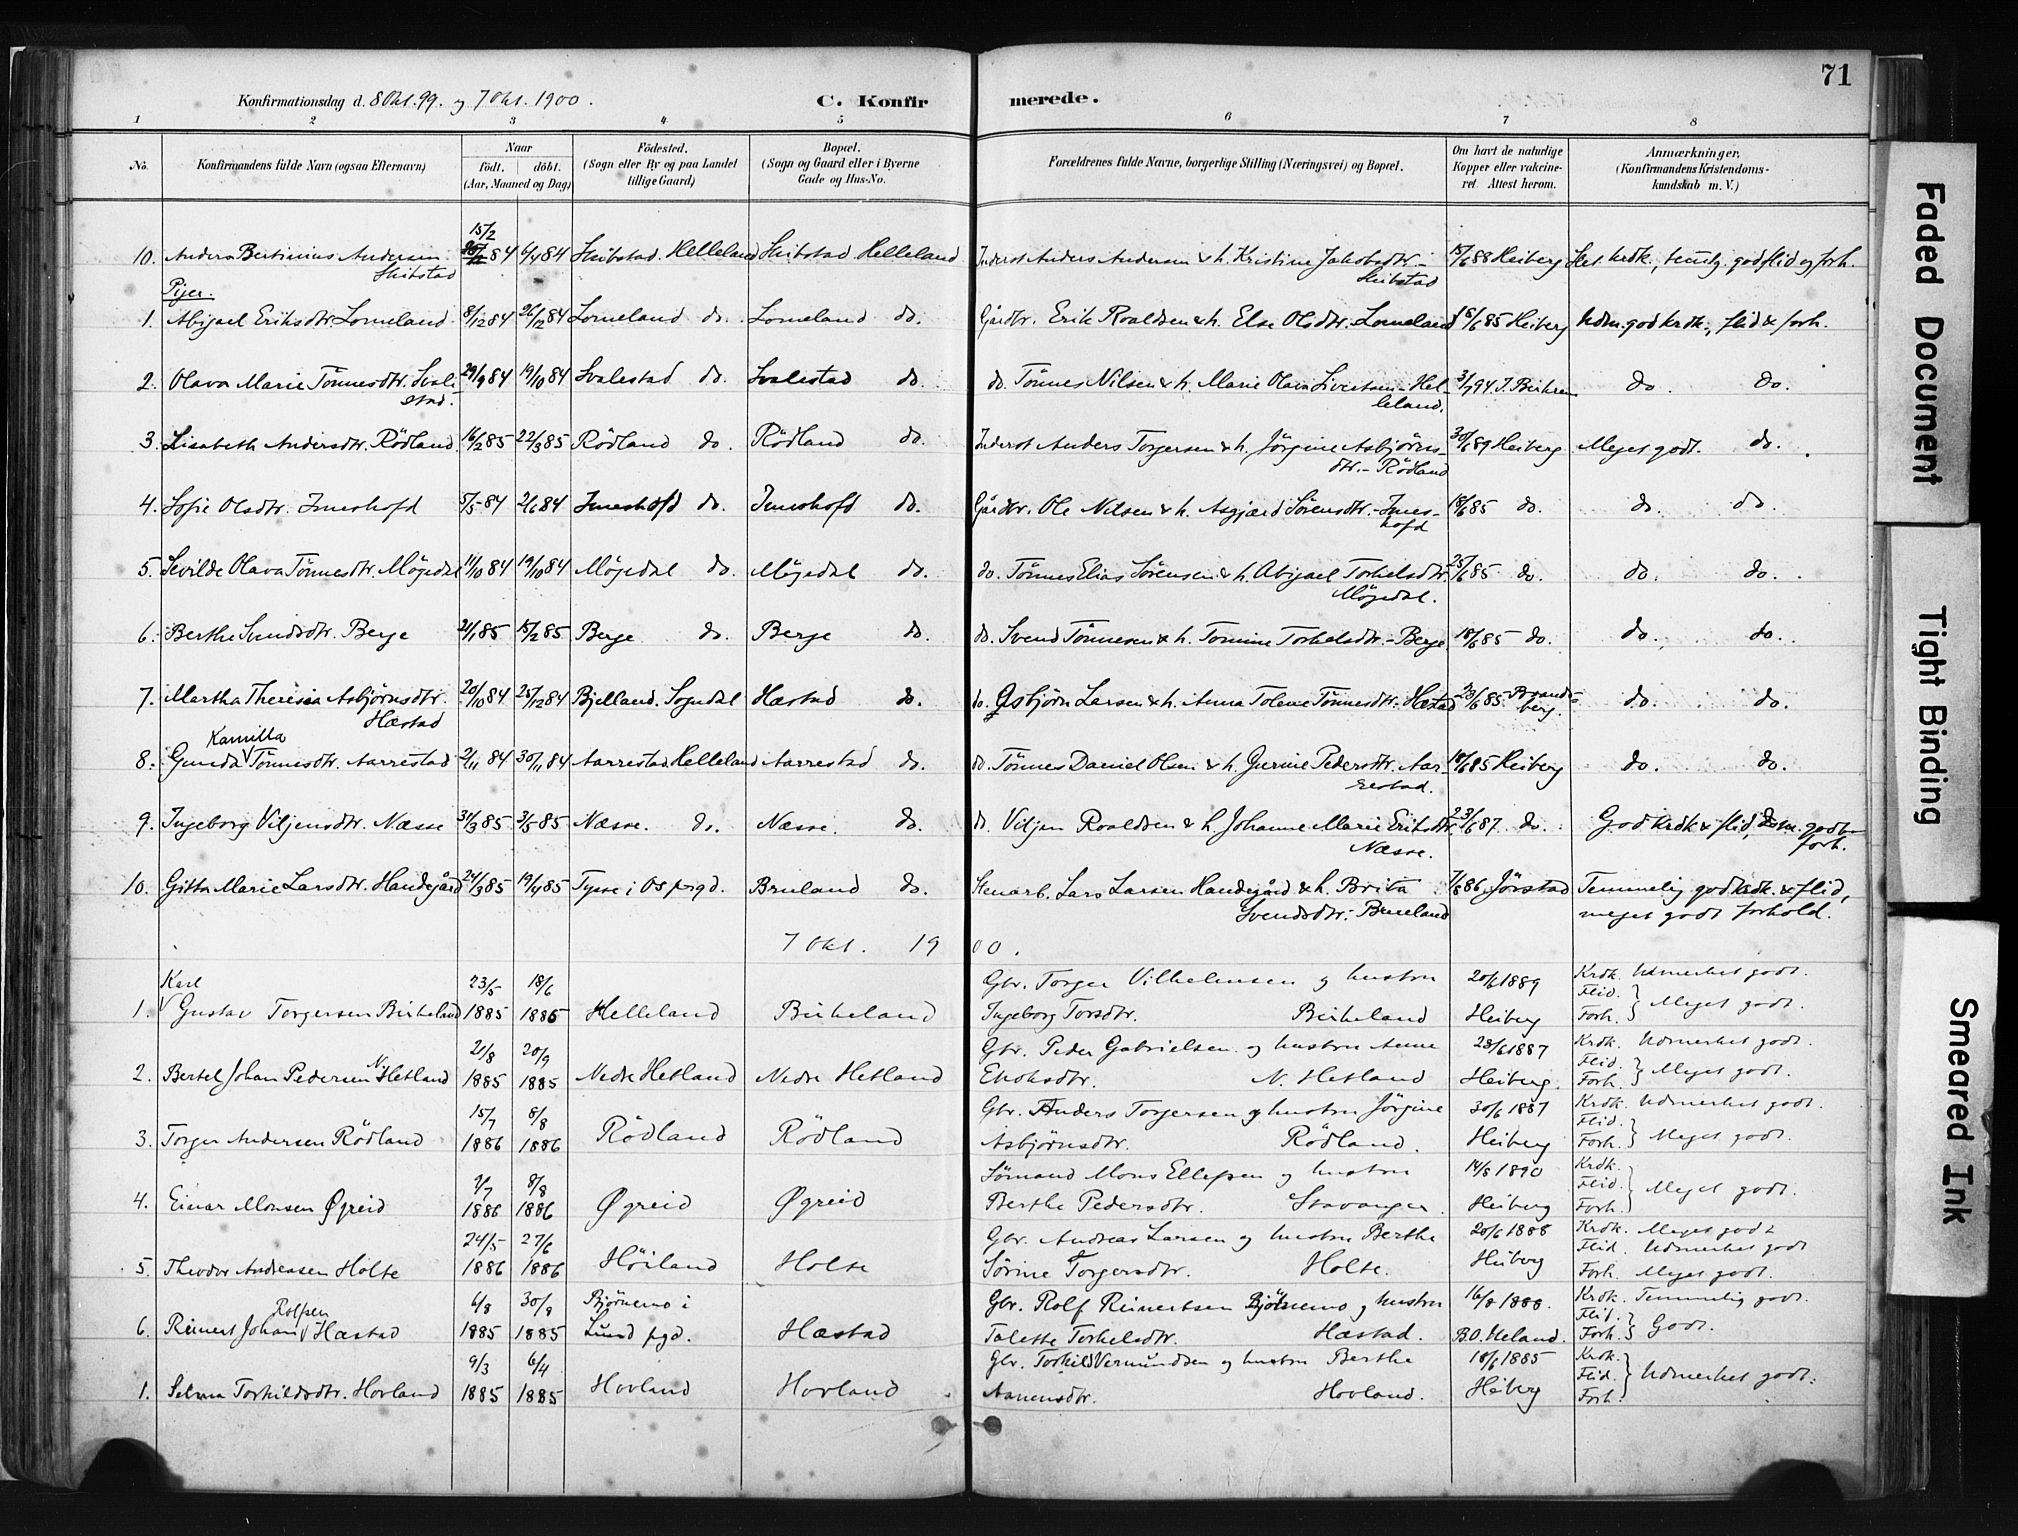 71
Konfirmationsdag d. 8 Okt. 99. og 7 Okt. 1900.
C. Konfirmerede.
1 2 3 4 5 6 7 8
No. Konfirmandens fulde Navn (ogsaa Efternavn) Naar födt. döbt. (Aar, Maaned og Dag) Födested. (Sogn eller By og paa Landet tillige Gaard) Bopæl. (Sogn og Gaard eller i Byerne Gade og Hus-No. Forældrenes fulde Navne, borgerlige Stilling (Næringsvei) og Bopæl. Om havt de naturlige Kopper eller vakcineret. Attest herom. Anmærkninger, (Konfirmandens Kristendomskundskab m. V.)
15/2
10. Anders Bertinius Andersen 84 6/4 84 Skibstad Helleland Skibstad Helleland Inderst Anders Andersen & h. Kristine Jakobsdtr. 15/6 88 Heiberg krdk., temlg. god flid og forh.
Skibstad Skibstad
Piger.
1. Abigael Eriksdtr. Lomeland 8/12 84 26/12 84 Lomeland do. Lomeland do. Gårdbr. Erik Roaldsen & h. Else Olsdtr. Lomeland 18/6 85 Heiberg Udm. god krdk., flid & forh.
2. Olava Marie Tönnesdtr. Svalestad. 29/9 84 19/10 84 Svalestad do. Svalestad do. do. Tönnes Nilsen & h. Marie Olava Sivertsen - Helleland. 3/7 94 J. Birkrem do. do.
3. Lisabeth Andersdtr. Rödland. 16/2 85 22/3 85 Rödland do. Rödland do. Inderst Anders Torgersen & h. Jörgine Asbjörnsdtr. - Rödland 30/6 89 Heiberg Meget godt. do.
4. Sofie Olsdtr. Imeshofd 5/5 84 2/6 84 Imeshofd do. Imeshofd do. Gårdbr. Ole Nilsen & h. Asgjærd Sörensdtr. - Imeshofd 18/6 85 do. do. do.
5. Sevilde Olava Tönnesdtr. Mögedal 11/10 84 19/10 84 Mögedal do. Mögedal do. do. Tönnes Elias Sörensen & h. Abigael Torkelsdtr. Mögedal. 25/6 85 do. do. do.
6. Berthe Svendsdtr. Berge 21/1 85 15/2 85 Berge do. Berge do. do. Svend Tönnesen & h. Tomine Torkelsdtr. - Berge. 18/6 85 do. do. do.
7. Martha Theresia Asbjörnsdtr. Hæstad 20/10 84 25/12 84 Bjelland. Sogndal Hæstad do. do. Asbjörn Larsen & h. Anna Tolene Tönnesdtr. Hæstad 23/6 85 Brandsberg. do. do.
Kamilla
8. Gunda Tönnesdtr. Aarrestad 2/11 84 30/11 84 Aarrestad. Helleland Aarrestad do. do. Tönnes Daniel Olsen & h. Gurine Pedersdtr. Aarrestad. 18/6 85 Heiberg do. do.
9. Ingeborg Viljensdtr. Næsse 31/3 85 3/5 85 Næsse. do. Næsse. do. do. Viljam Roaldsen & h. Johanne Marie Eriksdtr. Næsse. 23/6 87 do. God krdk & flid, godt forh.
10. Gitta Marie Larsdtr. Handegård 24/3 85 19/4 85 Tysse i Os prgd. Bruland do. Stenarb. Lars Larsen Handegård & h. Brita Svendsdtr. Brueland 7/6 86. Jörstad Temmelig god krdk. & flid, meget godt forhold.
7 Okt. 1900.
Karl 23/5 18/6 Gbr. Torger Vilhelmsen og hustru 20/6 1889 Krdk. Udmerket godt.
1. Gustav Torgersen Birkeland 1885 1885 Helleland Birkeland Ingeborg Torsdtr. Birkeland Heiberg Flid. Forh. Meget godt.
21/8 20/9 Gbr. Peder Gabrielsen og hustru Anne 23/6 1887 Krdk. Udmerket godt.
2. Bertel Johan Pedersen N. Hetland 1885 1885 Nedre Hetland Nedre Hetland Enoksdtr. N. Hetland Heiberg. Flid. Forh. Meget godt.
15/7 8/8 Gbr. Anders Torgersen og hustru Jörgine 30/6 1887 Krdk. Udmerket godt.
3. Torger Andersen Rödland 1886 1886 Rödland Rödland Asbjörnsdtr. Rödland. Heiberg Flid. Forh. Meget godt.
7/7 8/8 Sömand Mons Ellefsen og hustru 14/8 1890 Krdk.
4. Einar Monsen Øgreid 1886 1886 Øgreid Øgreid Berthe Pedersdtr. Stavanger. Heiberg Flid. Forh. Meget godt.
24/5 27/6 Gbr. Andreas Larsen og hustru Berthe 20/6 1888 Krdk. Meget godt
5. Theodor Andreasen Holte 1886 1886 Höiland Holte Sörine Torgersdtr. Holte. Heiberg Flid. Udmerket godt Forh. Meget godt.
Rolfsen 6/8 30/8 Bjørnemo i Gbr. Rolf Reinertsen Bjørnemo og hustru 16/8 1888. Krdk. Temmelig godt.
6. Reinert Johan Hæstad 1885 1885 Lund pgd. Hæstad Talette Torkelsdtr. Hæstad. B.O. Ueland. Flid. Forh. Godt.
9/3 6/4 Gbr. Torkild Vermundsen og hustru Berthe 18/6 1885 Krdk.
1. Selma Torkildsdtr. Hovland 1885 1885 Hovland Hovland Aanensdtr. Hovland. Heiberg Flid. Forh. Udmerket godt.
Faded Document
Tight Binding
Smeared Ink